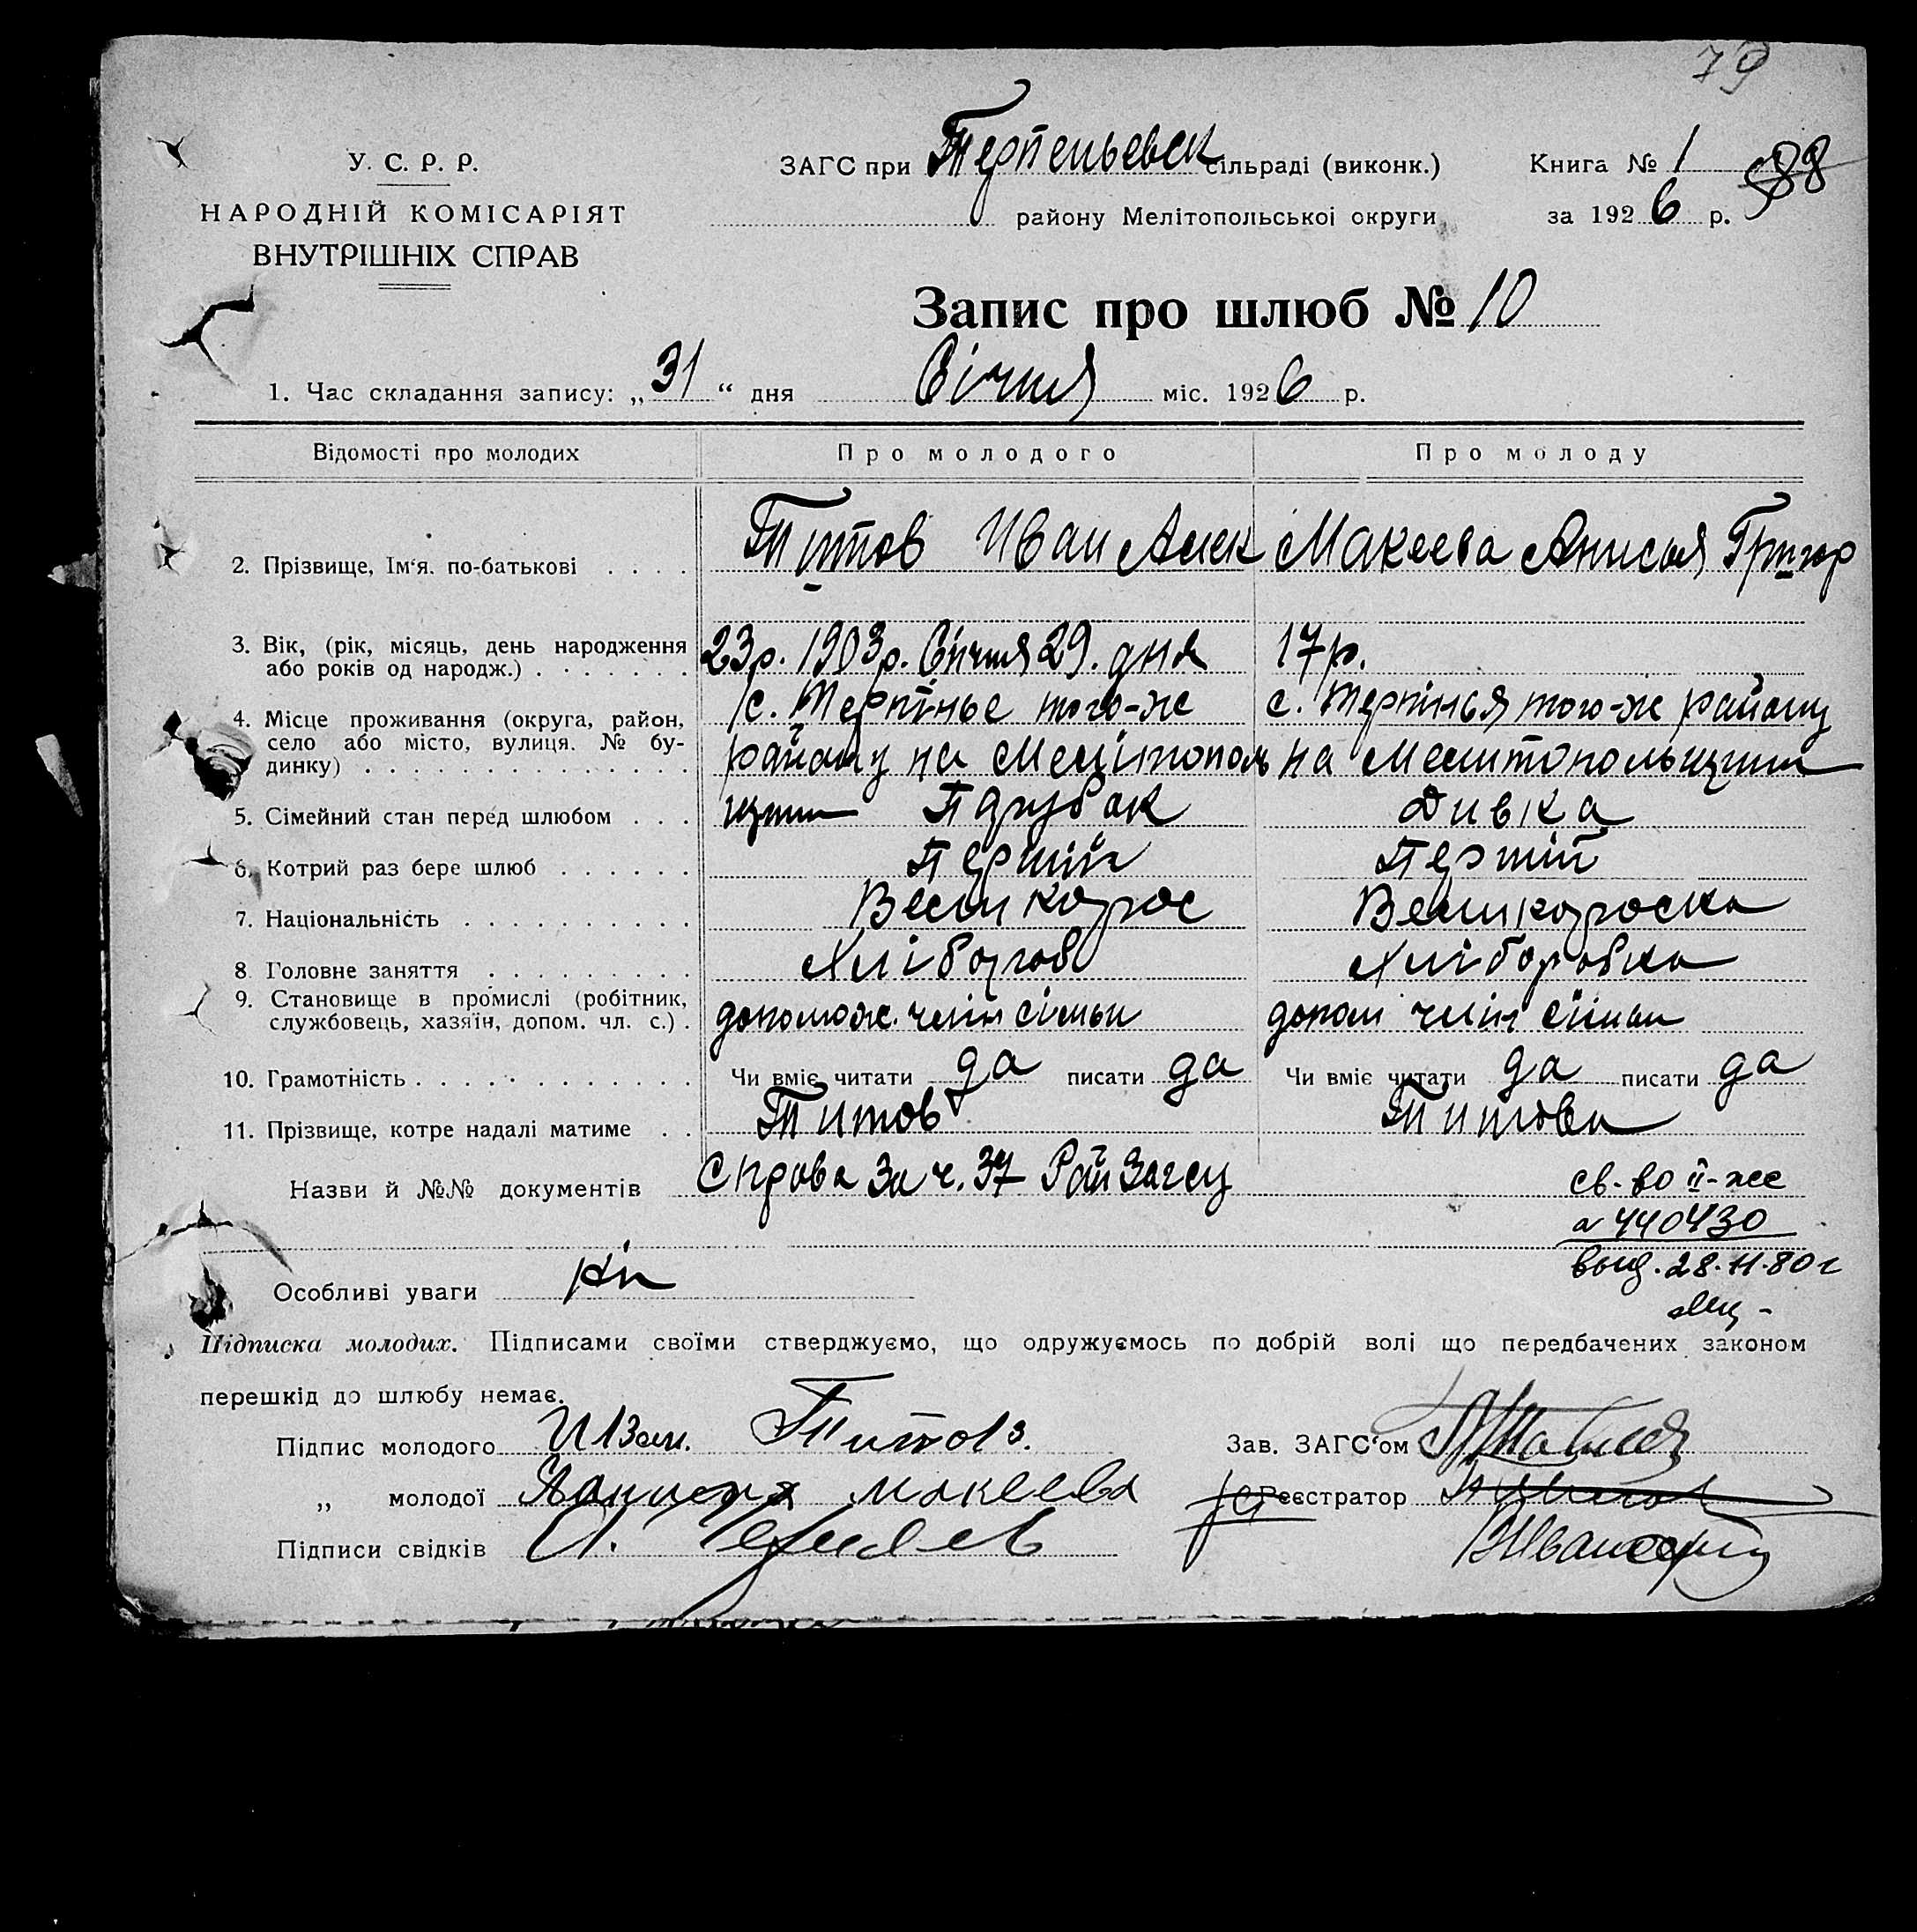 79
У. С. Р. Р.
НАРОДНІЙ КОМІСАРІЯТ
ВНУТРІШНІХ СПРАВ
ЗАГС при Терпеньевск сільраді (виконк.)
району Мелітопольської округи
Книга № 1
88
за 1926 р.
Запис про шлюб № 10
1. Час складання запису: „31“ дня Січня міс. 1926 р.
Відомості про молодих Про молодого Про молоду
2. Прізвище, Ім‘я. по-батькові . . . . Титов Иван Алек Макеева Анисья Григор
3. Вік, (рік, місяць, день народження 23р. 1903р. Січня 29. дня 17р.
або років од народж.) . . . . . . .
4. Місце проживання (округа, район, с. Терпінье того-же с. Терпінья того-же району
село або місто, вулиця. № бу- району на Мелітополь на Мелитопольщини
динку) . . . . . . . . . . . . . . .
5. Сімейний стан перед шлюбом . . . щини Парубак Дивка
6. Котрий раз бере шлюб . . . . . . Перший Перший
7. Національність . . . . . . . . . . Великорос Великороска
8. Головне заняття . . . . . . . . . Хлібороб Хліборобка
9. Становище в промислі (робітник, допомож. член сімьи допом член сімьи
службовець, хазяїн, допом. чл. с.) .
10. Грамотність . . . . . . . . . . . . Чи вміє читати да писати да Чи вміє читати да писати да
11. Прізвище, котре надалі матиме . . Титов Титова
Назви й №№ документів Справа За ч. 37 Рай Загсу
св-во II-жс
440430
выд. 28.11.80г
Особливі уваги
Підписка молодих. Підписами своїми стверджуємо, що одружуємось по добрій волі що передбачених законом
перешкід до шлюбу немає.
Підпис молодого Иван. Титов. Зав. ЗАГС‘ом
„ молодої Макеева Реєстратор
Підписи свідків